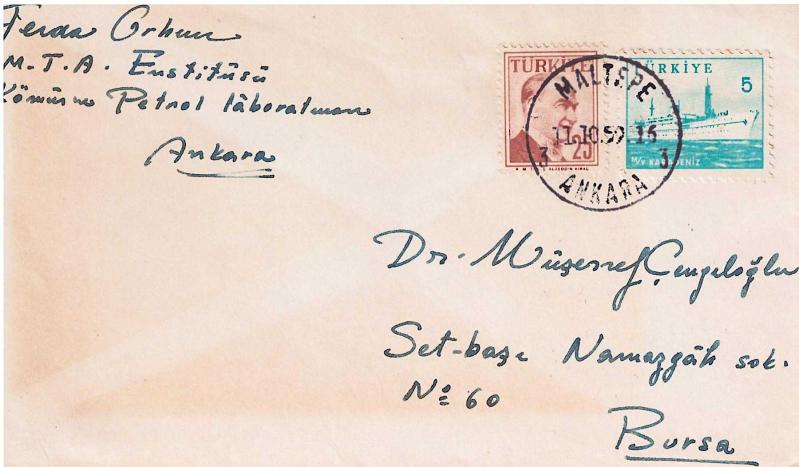 Ferda Orhun
M.T.A. Enstitüsü
Kömür ve Petrol lâboratuvarı
Ankara
TÜRKİYE
25
TÜRKİYE
5
M/V KARADENİZ
MALTEPE
11.10.59.16
3 3
ANKARA
Dr. Müşerref Çengeloğlu
Set-başı Namazgâh sok.
No 60
Bursa